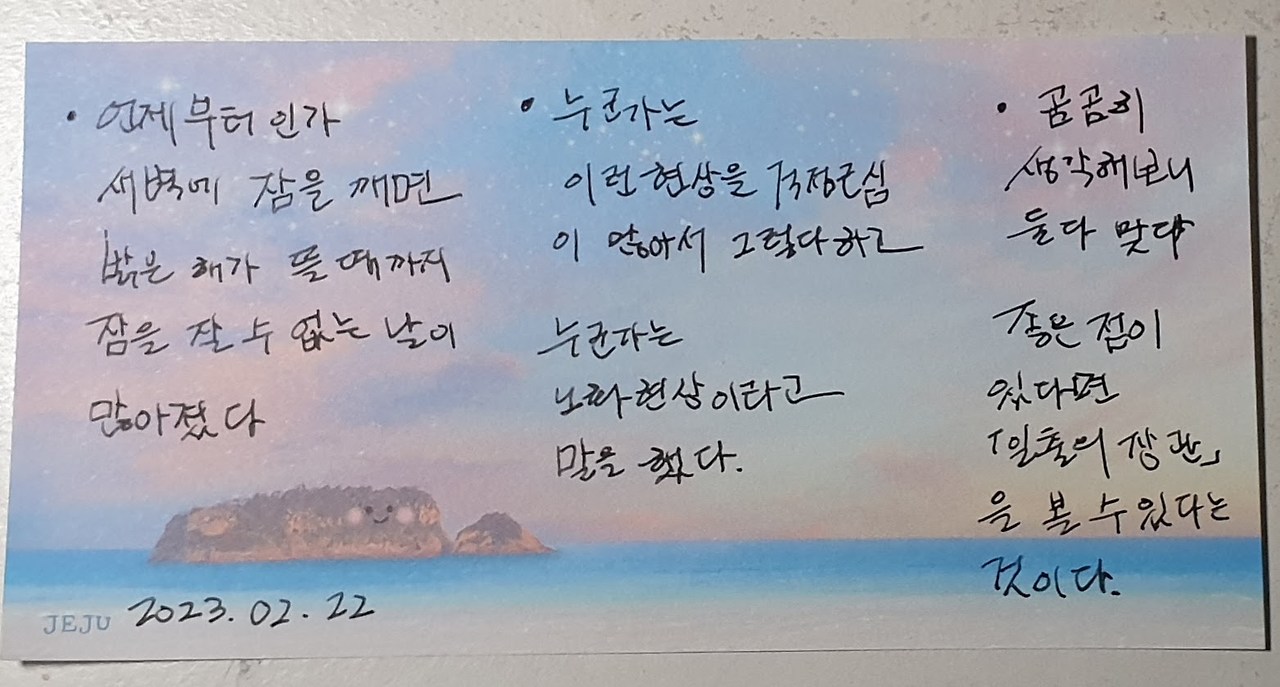 • 언제부터인가
새벽에 잠을 깨면
밝은 해가 뜰 때까지
잠을 잘 수 없는 날이
많아졌다
• 누군가는
이런현상을 걱정근심
이 많아서 그렇다하고
누군가는
노화현상이라고
말을 했다.
• 곰곰히
생각해보니
둘다 맞다
좋은 점이
있다면
「일출의 장관」
을 볼 수 있다는
것이다.
JEJU 2023.02.22